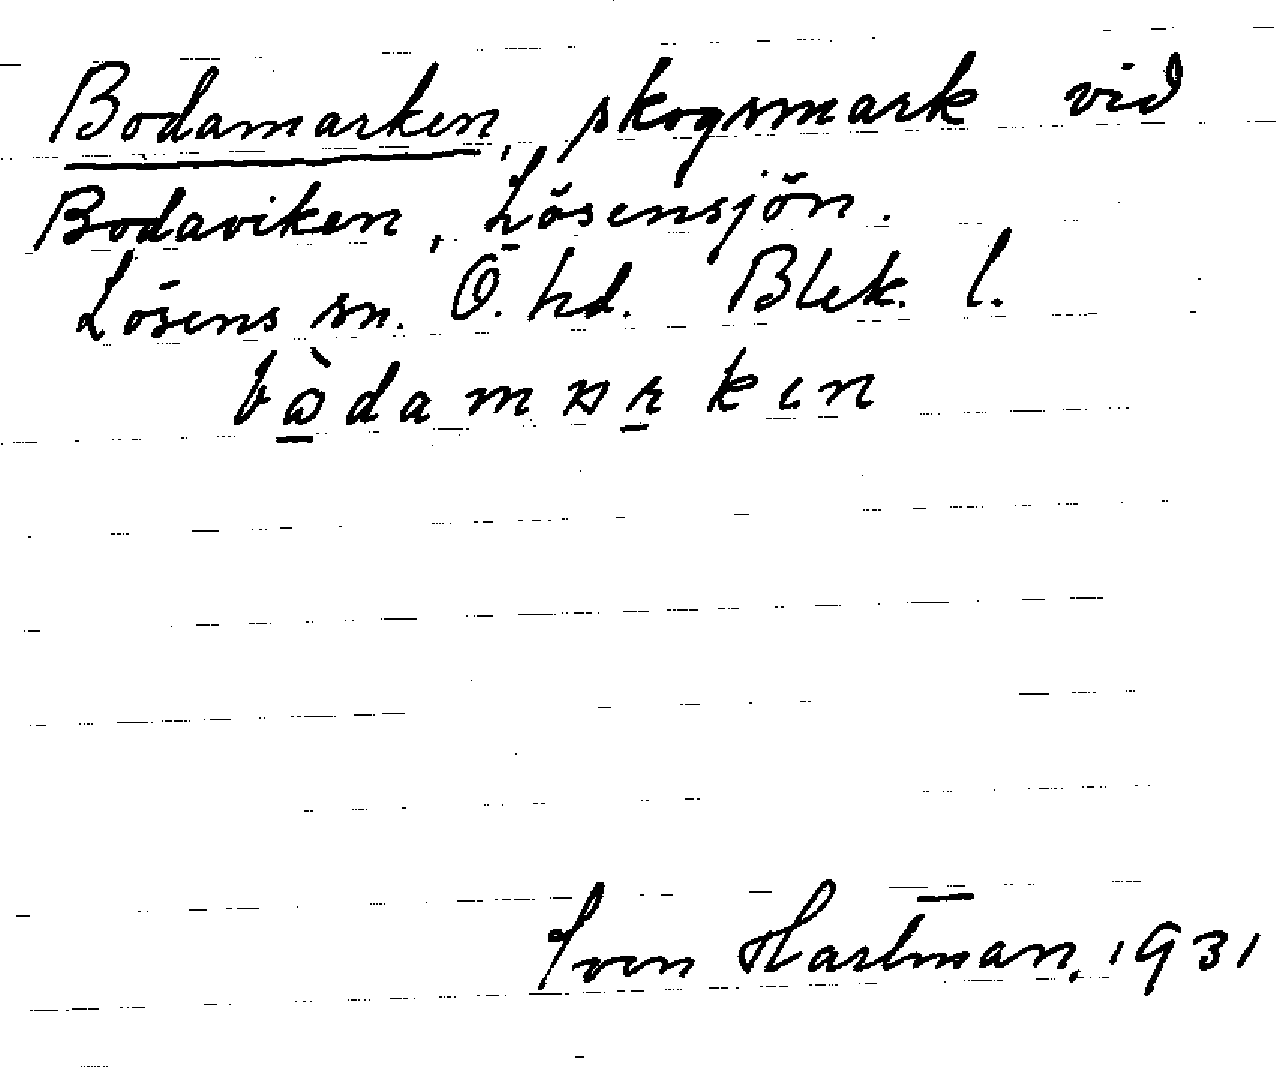 Bodamarken, skogsmark vid
Bodaviken, Lösensjön.
Lösens sn. Ö. hd. Blek. l.
Iven Hartman, 1931